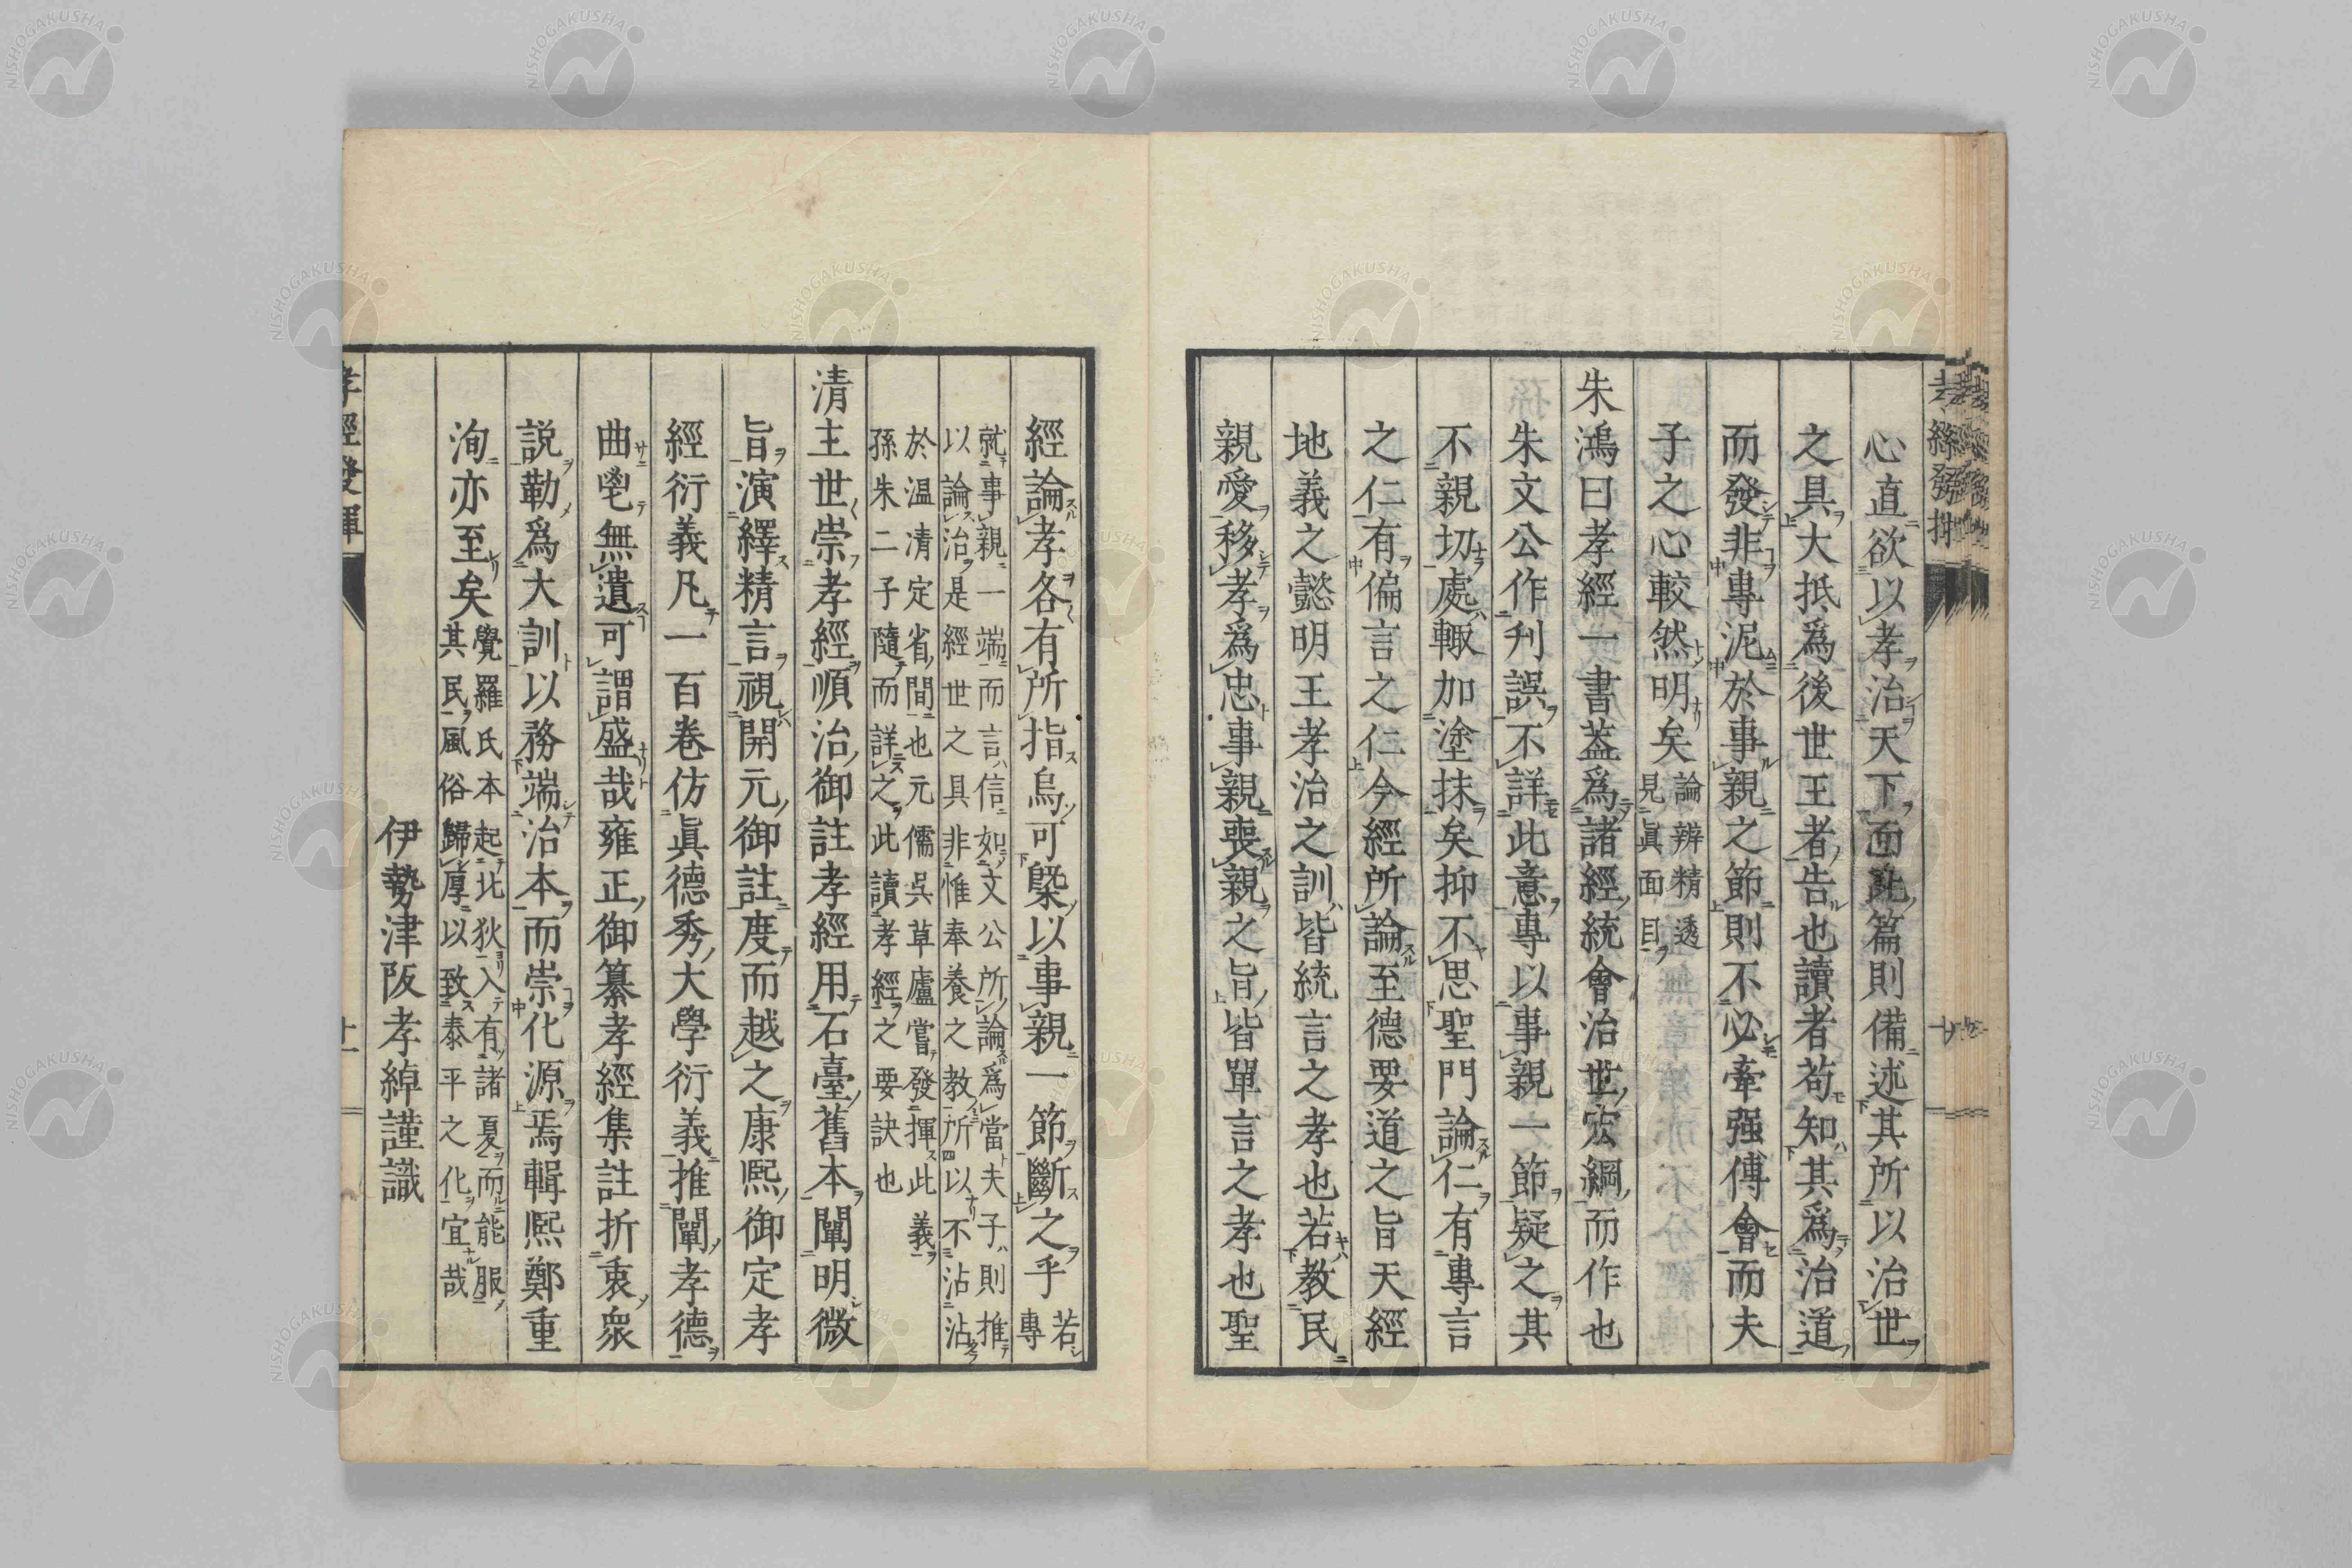 心直欲以孝治天下而此篇則備述其所以治世
之具大抵爲後世王者告也讀者苟知其爲治道
而發非專泥於事親之節則不必牽强傅會而夫
子之心較然明矣論辨精透
見眞面目
朱鴻曰孝經一書蓋爲諸經統會治世宏綱而作也
朱文公作刋誤不詳此意專以事親一節疑之其
不親切處輙加塗抹矣抑不思聖門論仁有專言
之仁有偏言之仁今經所論至德要道之旨天經
地義之懿明王孝治之訓皆統言之孝也若教民
親愛移孝爲忠事親喪親之旨皆單言之孝也聖
經論孝各有所指烏可槩以事親一節斷之乎若
專
就事親一端而言信如文公所論爲當夫子則推
以論治是經世之具非惟奉養之教所以不沾沾
於温凊定省間也元儒吳草廬嘗發揮此義
孫朱二子隨而詳之此讀孝經之要訣也
清主世崇孝經順治御註孝經用石臺舊本闡明微
旨演繹精言視開元御註度而越之康熙御定孝
經衍義凡一百巻仿眞德秀大學衍義推闡孝德
曲鬯無遺可謂盛哉雍正御纂孝經集註折衷衆
説勒爲大訓以務端治本而崇化源焉輯熙鄭重
洵亦至矣覺羅氏本起北狄入有諸夏而能服
其民風俗歸厚以致泰平之化宜哉
伊勢津阪孝綽謹識
孝經發揮
十一
NISHOGAKUSHA